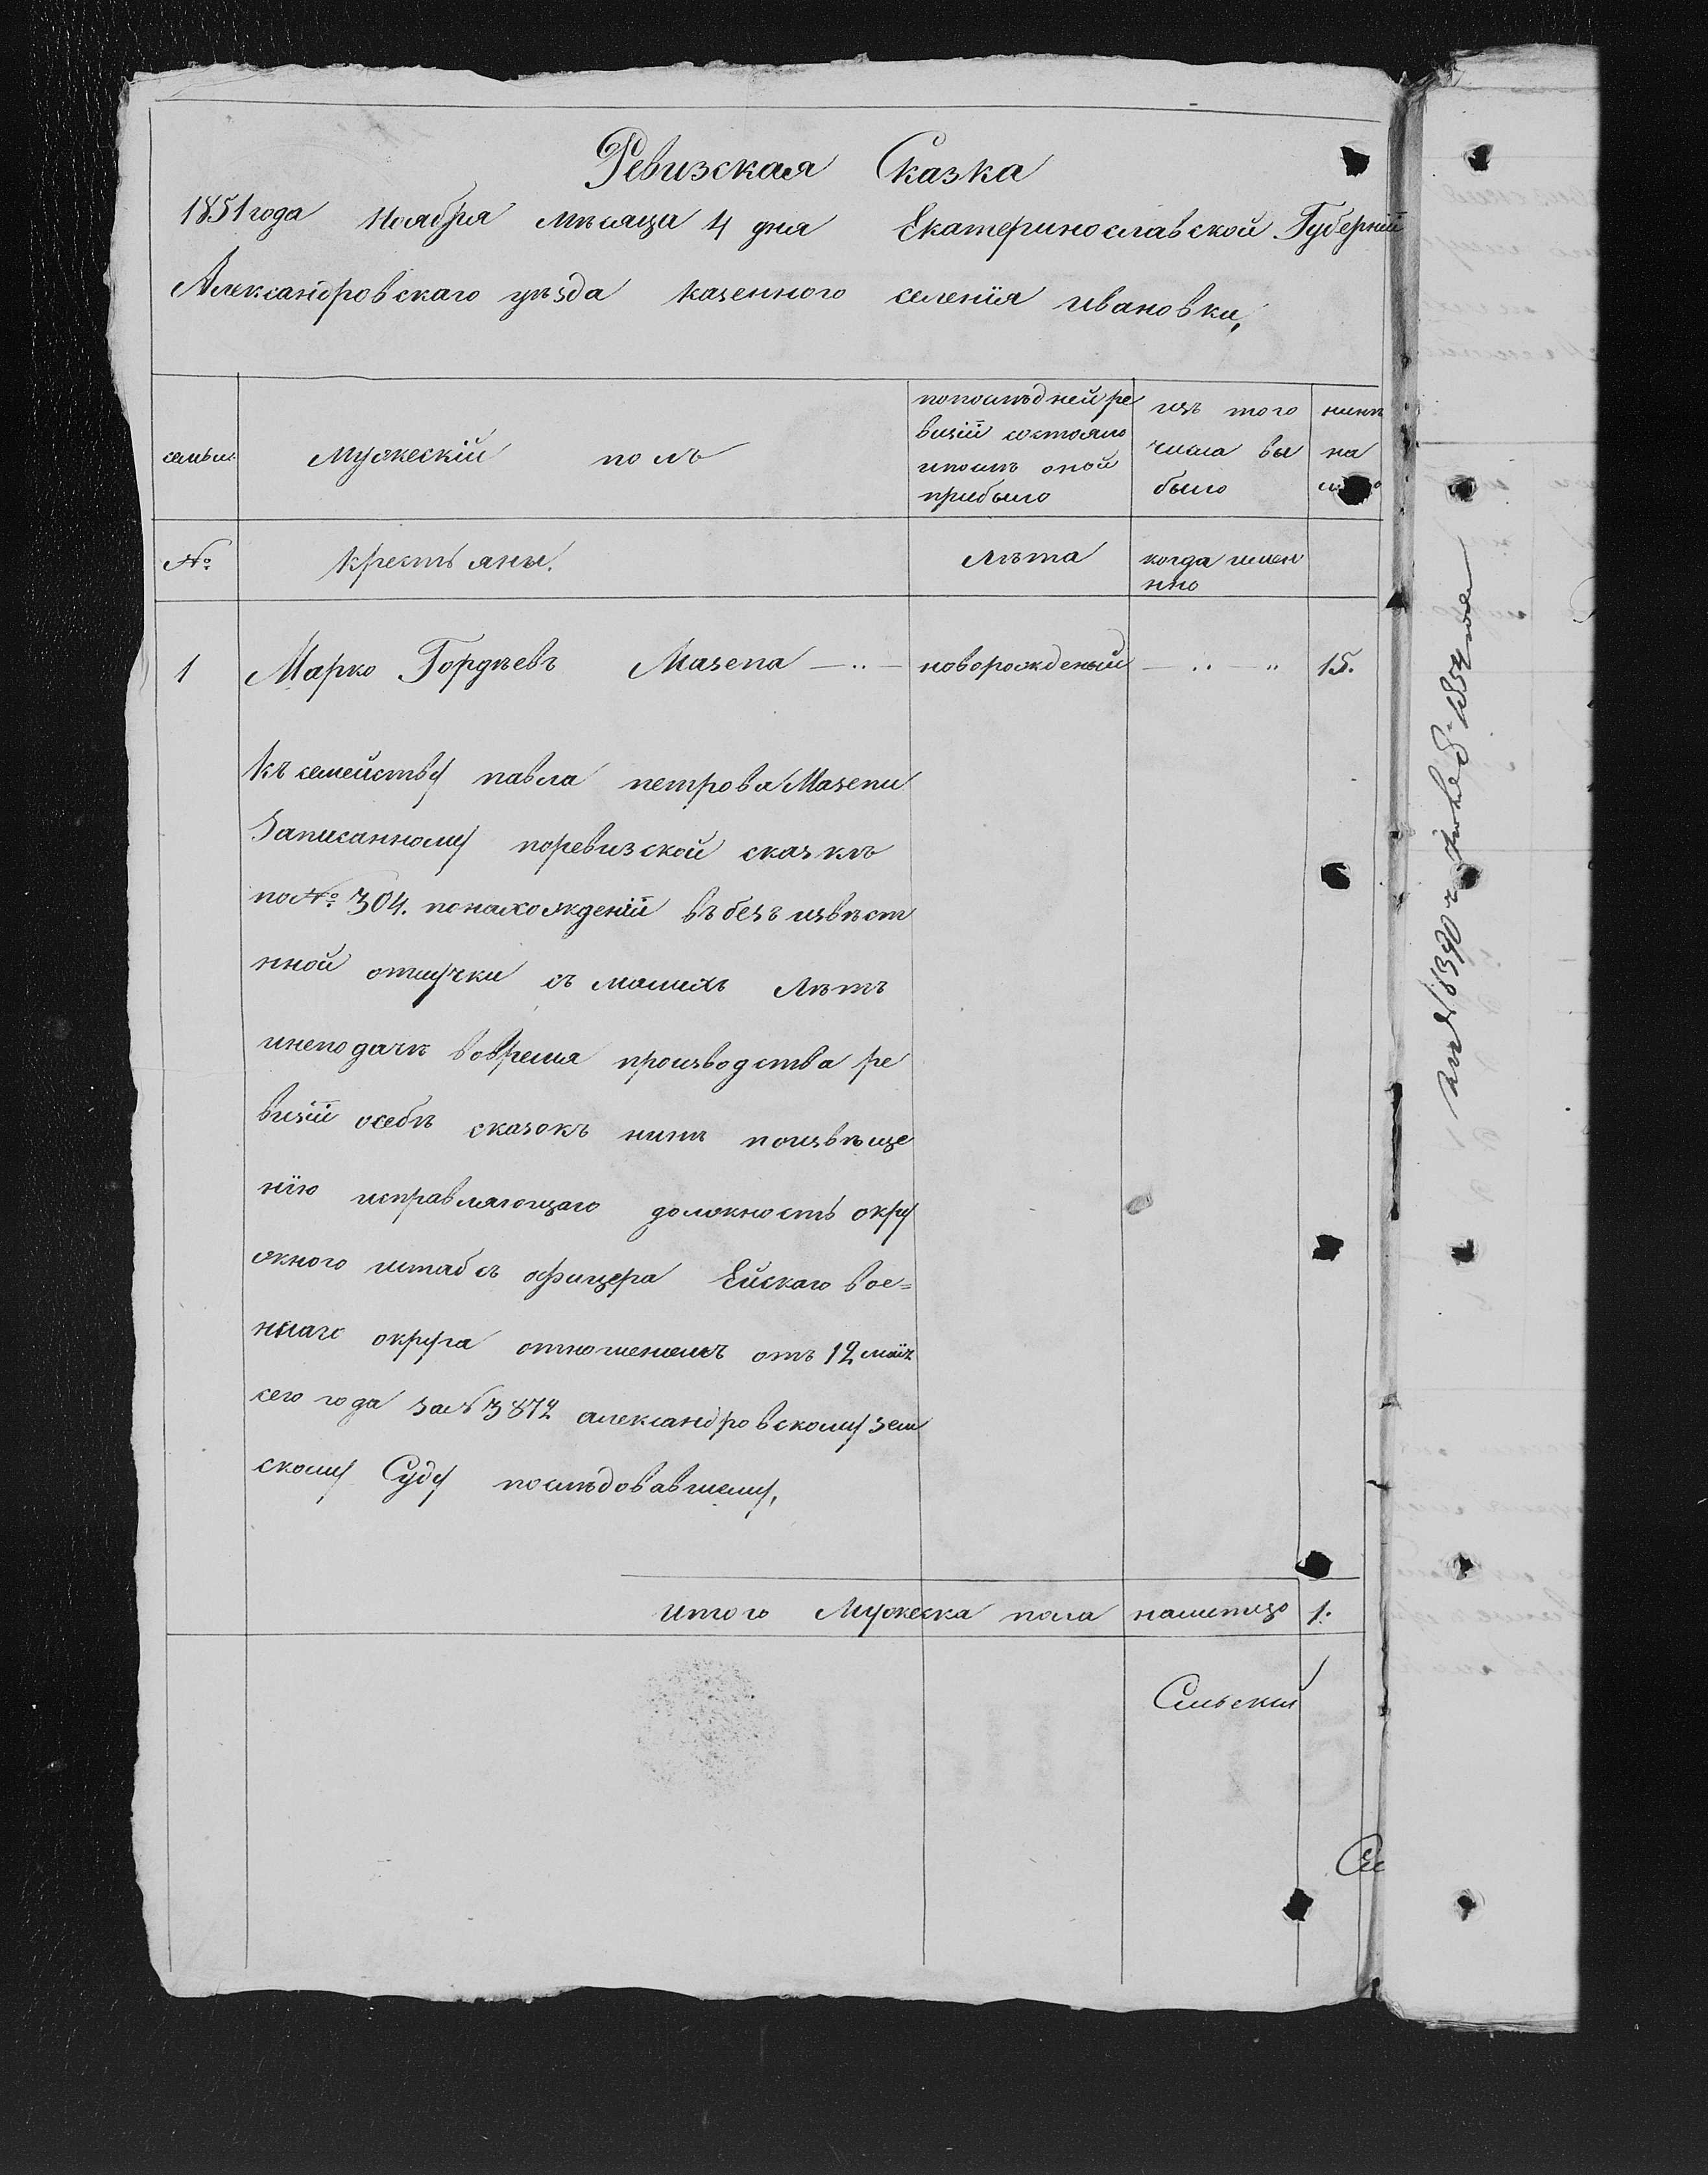 Ревизская Сказка
1851 года Ноября мѣсяца 4 дня Екатеринославской Губерніи
Александровскаго уѣзда казенного селенія ивановки,
семьи
мужескій полъ
попослѣдней ре
визіи состояло
ипослѣ оной
прибыло
изъ того
числа вы
было
нынѣ
на
№
крестьяны.
лѣта
когда имен
нно
1 Марко Гордѣевъ Мазепа — .. — новорожденый — .. — „ 15.
къ семейству павла петрова Мазепи
Записанному поревизской сказкѣ
по № 304. понахожденіи въ безъ извѣст
нной отлучки съ малихъ лѣтъ
инеподачѣ вовремя производства ре
визіи особѣ сказокъ нинѣ поизвѣще
нію исправляющаго должность окру
жного штабсъ офицера Ейскаго вое=
ннаго округа отношениемъ отъ 12 маія
сего года за № 3872 александровскому зем
скому Суду послѣдовавшему,
итого Мужеска пола налицо 1.
Сельскій